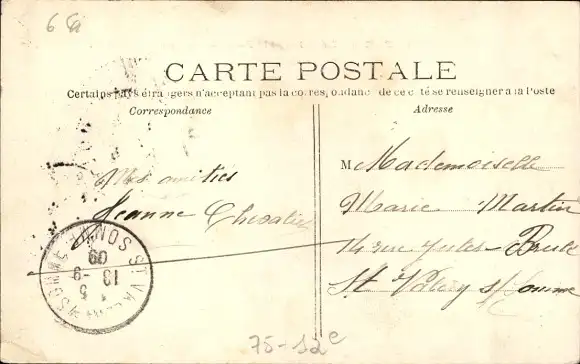 6 a
CARTE POSTALE
Certains pays étrangers n'acceptant pas la correspondance de ce côté se renseigner à la Poste
Correspondance
Adresse
Mes amitiés
Jeanne Chevalier
M Mademoiselle
Marie Martin
14 rue Jules Brulé
St Valery s/somme
ST VALERY SOMME
13 -9
09
75-12e